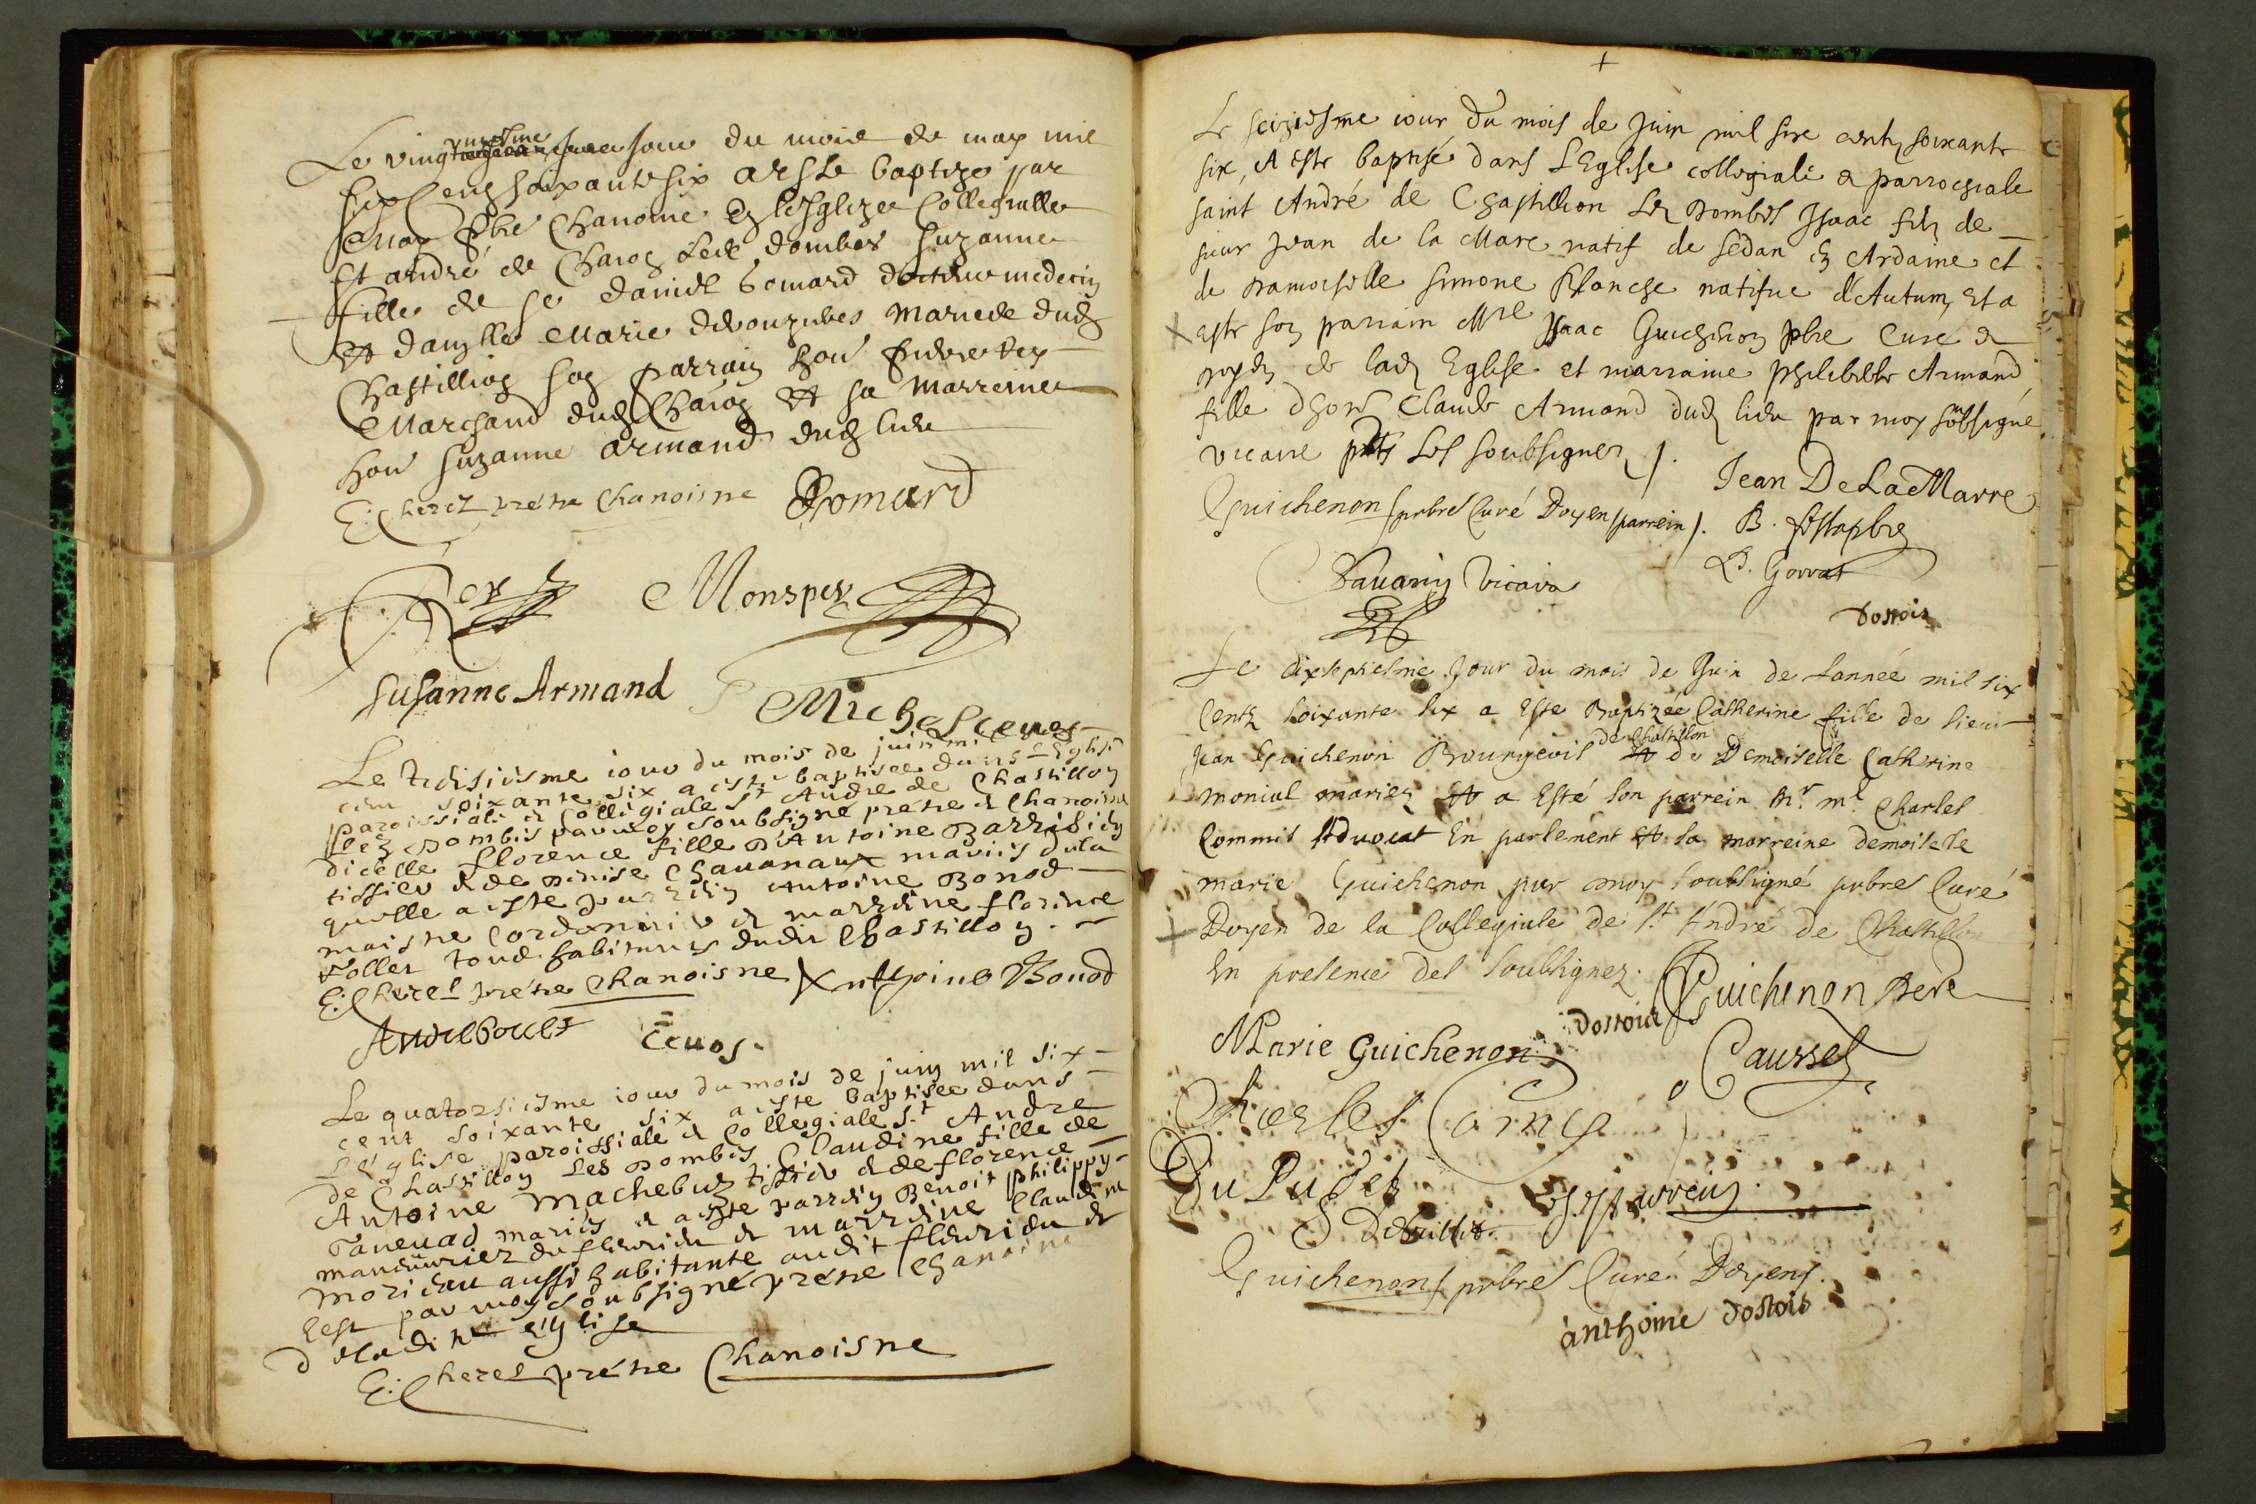 Le vingt unzesme jour du mois de may mil
six cens soixante six a este baptize par
moy pbre Chanoine en lesglize Collegialle
St andré de Chaon les dombes suzanne
fille de sr daniel bomard docteur medecin
et damlle Marie mariés dud
Chastillion son parrain hon
Marchand dud Chaon et sa marreine
hon suzanne armand dud lieu
E: Cheret prétre Chanoisne Bomard
Rey Monspey
susanne Armand Michel
Le troisiesme iour du mois de juin mil six
cent soixante six a esté baptisee dans l'Eglise
paroissiale et Collegiale St André de Chastillon
Les Dombes par moy soubsigné prétre et Chanoisne
dicelle florence fille d'Antoine
tissier et de Denise Chavanaux mariés de la
quelle a este parrein Antoine Bonod
maistre Cordonnier et marreine florence
follet tous habitants dudit Chastillon.
E: Cheret prétre Chanoisne Anthoine Bonod
Andreboulet Cevos.
Le quatorsiesme iour du mois de juin mil six
cent soixante six a este baptisee dans
L'église paroissiale et Collegiale St André
de Chastillon Les Dombes Claudine fille de
Antoine Machebuz tissier et de florence
Tanevad mariés et a este parrein Benoit philippy
manouvrier de fleurieu et marreine Claudine
morieau aussi habitante audit fleurieu et
c'est par moy soubsigné prétre Chanoine
de ladite église
E: Cheret prétre Chanoisne
+
Le seiziesme iour du mois de juin mil six cents soixante
six, A este baptisé dans L'Eglise collegiale & parrochiale
saint André de Chastillion les Dombes Isaac filz de
sieur Jean de la Mare natif de sedan en Ardaine et
de Damoiselle simone Planche natifue d'Autum, et a
este son parrain Mre Isaac Guichenon pbre Curé &
Doyen de lad Eglise et marraine philiberte Armand
fille d'hon Claude Armand dud lieu par moy sobsigné
vicaire pnts les soubsignez /.
Jean De La Marre
Guichenon pbre Curé Doyen parrein /. B.
Savarin vicaire B. Gorrat
Dostois
Le dixseptiesme Jour du mois de Juin de Lannée mil six
Centz soixante six a Esté Baptizée Catherine fille de sieur
Jean Guichenon Bourgeois de Chatillon et de Demoiselle Catherine
monial mariez et a Esté son parrein Mr. me. Charles
Commis Advocat En parlement et sa marreine demoiselle
marie Guichenon par moy soubsigné pbre Curé
Doyen de la Collegiale de St. André de Chastillon
En presence des soubsignez.
Guichenon Pere
Dostois
Marie Guichenon Causset
Charles Comis
Du Puget
Guichenon pbre Curé Doyen.
anthoine dostois